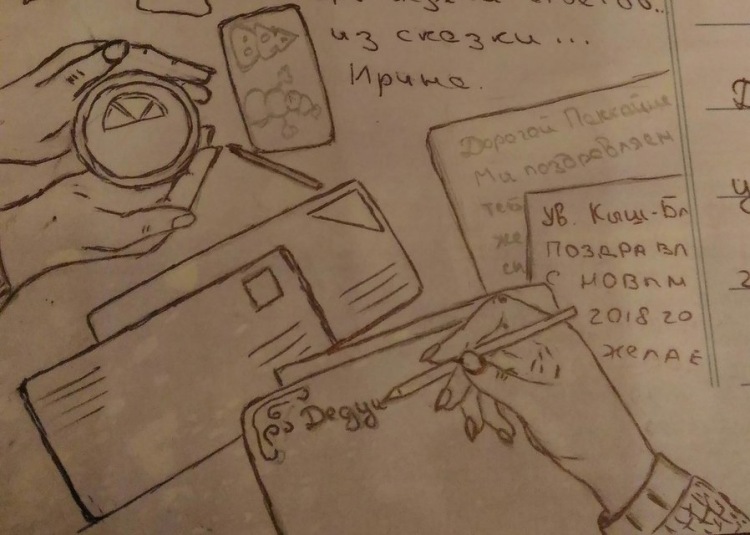 из сказки...
Ирина.
Дорогой Паккайне
Мы поздравляем
теб
же
УВ. Кыш-Бa
ПОЗДРАВЛ
С НОВЫМ
2018 го
желАЕ
Дедуш